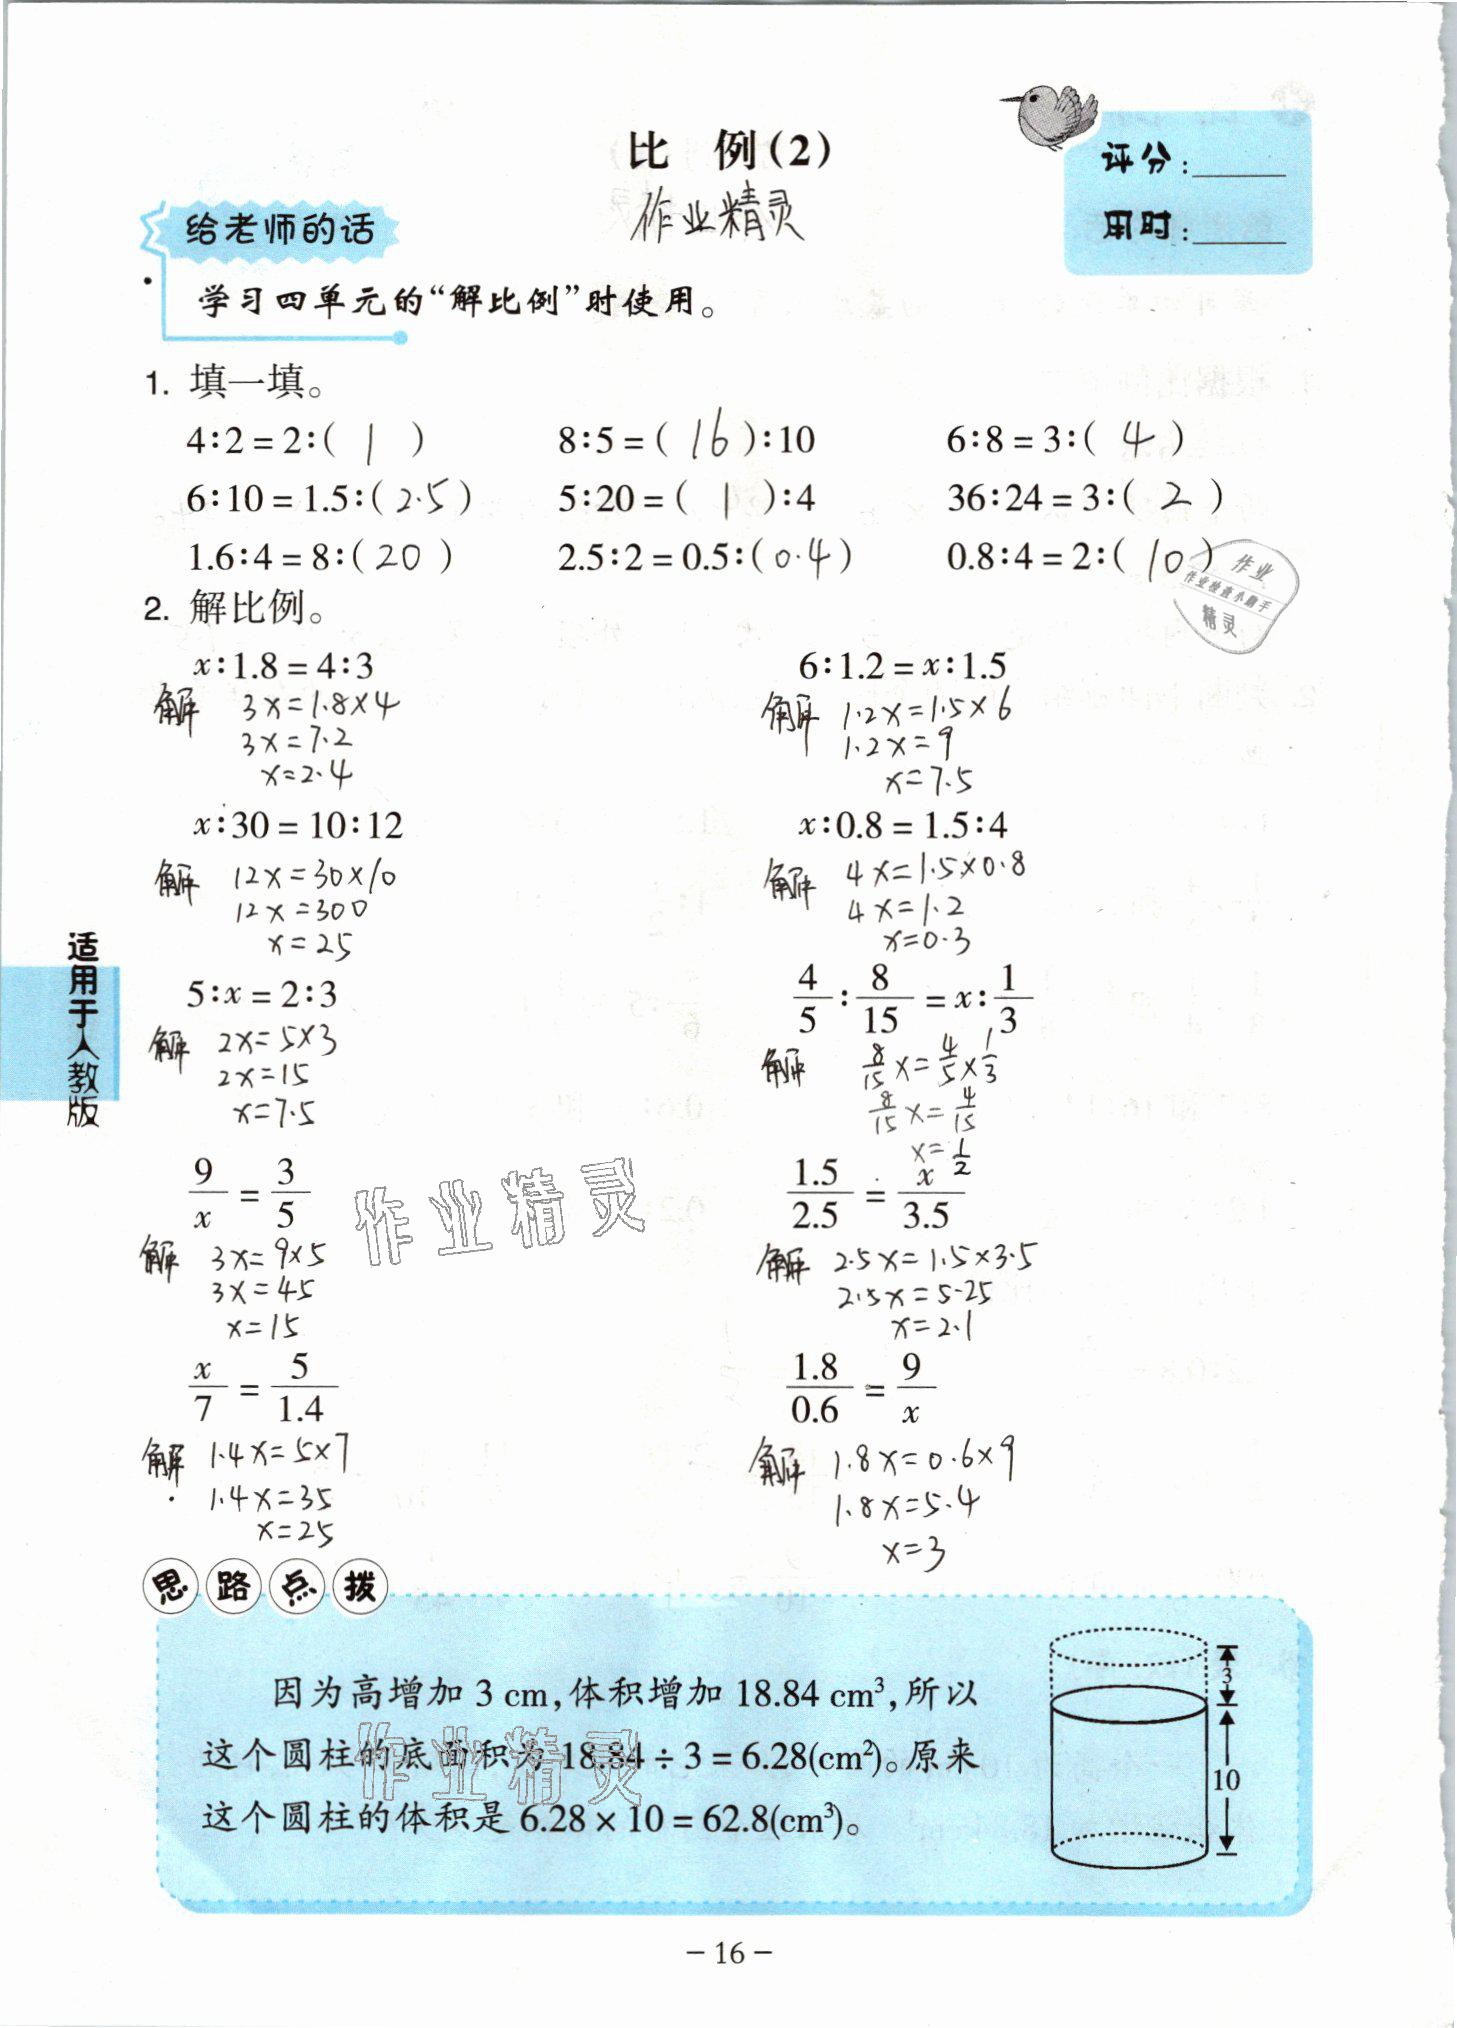 比 例(2)
作业精灵
评分:
用时:
给老师的话
学习四单元的“解比例”时使用。
1. 填一填。
4∶2=2∶( 1 ) 8∶5=( 16 )∶10 6∶8=3∶( 4 )
6∶10=1.5∶( 2.5 ) 5∶20=( 1 )∶4 36∶24=3∶( 2 )
1.6∶4=8∶( 20 ) 2.5∶2=0.5∶( 0.4 ) 0.8∶4=2∶( 10 )
作业
作业检查小助手
精灵
2. 解比例。
x∶1.8=4∶3 6∶1.2=x∶1.5
解 3x=1.8×4 解 1.2x=1.5×6
3x=7.2 1.2x=9
x=2.4 x=7.5
x∶30=10∶12 x∶0.8=1.5∶4
解 12x=30×10 解 4x=1.5×0.8
12x=300 4x=1.2
x=25 x=0.3
5∶x=2∶3 4/5∶8/15=x∶1/3
解 2x=5×3 解 8/15x=4/5×1/3
2x=15 8/15x=4/15
x=7.5 x=1/2
9/x=3/5 1.5/2.5=x/3.5
解 3x=9×5 解 2.5x=1.5×3.5
3x=45 2.5x=5.25
x=15 x=2.1
x/7=5/1.4 1.8/0.6=9/x
解 1.4x=5×7 解 1.8x=0.6×9
1.4x=35 1.8x=5.4
x=25 x=3
适用于人教版
作业精灵
思路点拨
因为高增加 3 cm,体积增加 18.84 cm³,所以
这个圆柱的底面积为 18.84÷3=6.28(cm²)。原来
这个圆柱的体积是 6.28×10=62.8(cm³)。
作业精灵
3
10
－16－